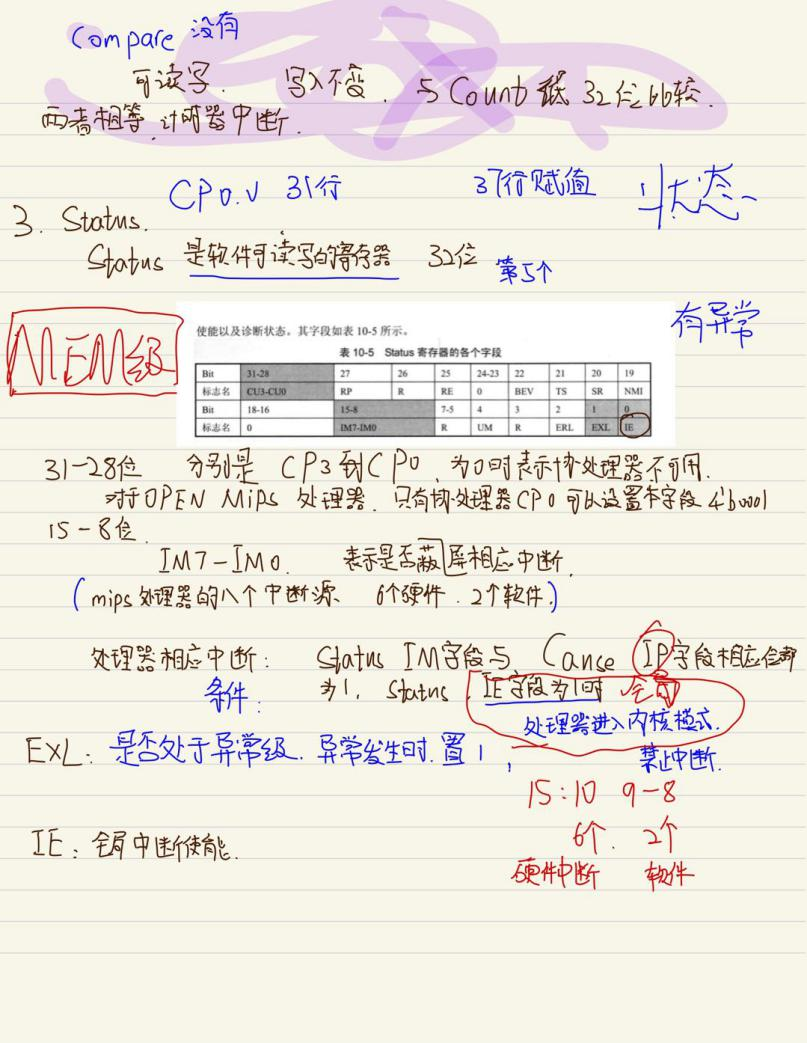 Compare 没有
可读写. 写入不变. 与 Count 32位比较.
两者相等, 计时器中断.
CP0.v 31行 37行赋值 状态
3. Status.
Status 是软件可读写的寄存器 32位 第5个
MEM级 有异常
使能以及诊断状态。其字段如表 10-5 所示。
表 10-5 Status 寄存器的各个字段
Bit 31-28 27 26 25 24-23 22 21 20 19
标志名 CU3-CU0 RP R RE 0 BEV TS SR NMI
Bit 18-16 15-8 7-5 4 3 2 1 0
标志名 0 IM7-IM0 R UM R ERL EXL IE
31-28位 分别是 CP3到CP0, 为0时表示协处理器不可用.
对于OPEN MIPS 处理器, 只有协处理器CP0 可以设置本字段 4'b0001
15-8位.
IM7-IM0. 表示是否蔽屏相应中断.
(mips 处理器的八个中断源 6个硬件. 2个软件.)
处理器相应中断: Status IM字段与 Cause IP字段相应位都
条件: 为1, Status, IE字段为1时
处理器进入内核模式.
EXL: 是否处于异常级. 异常发生时. 置1, 禁止中断.
15:10 9-8
IE: 全局中断使能. 6个. 2个
硬件中断 软件